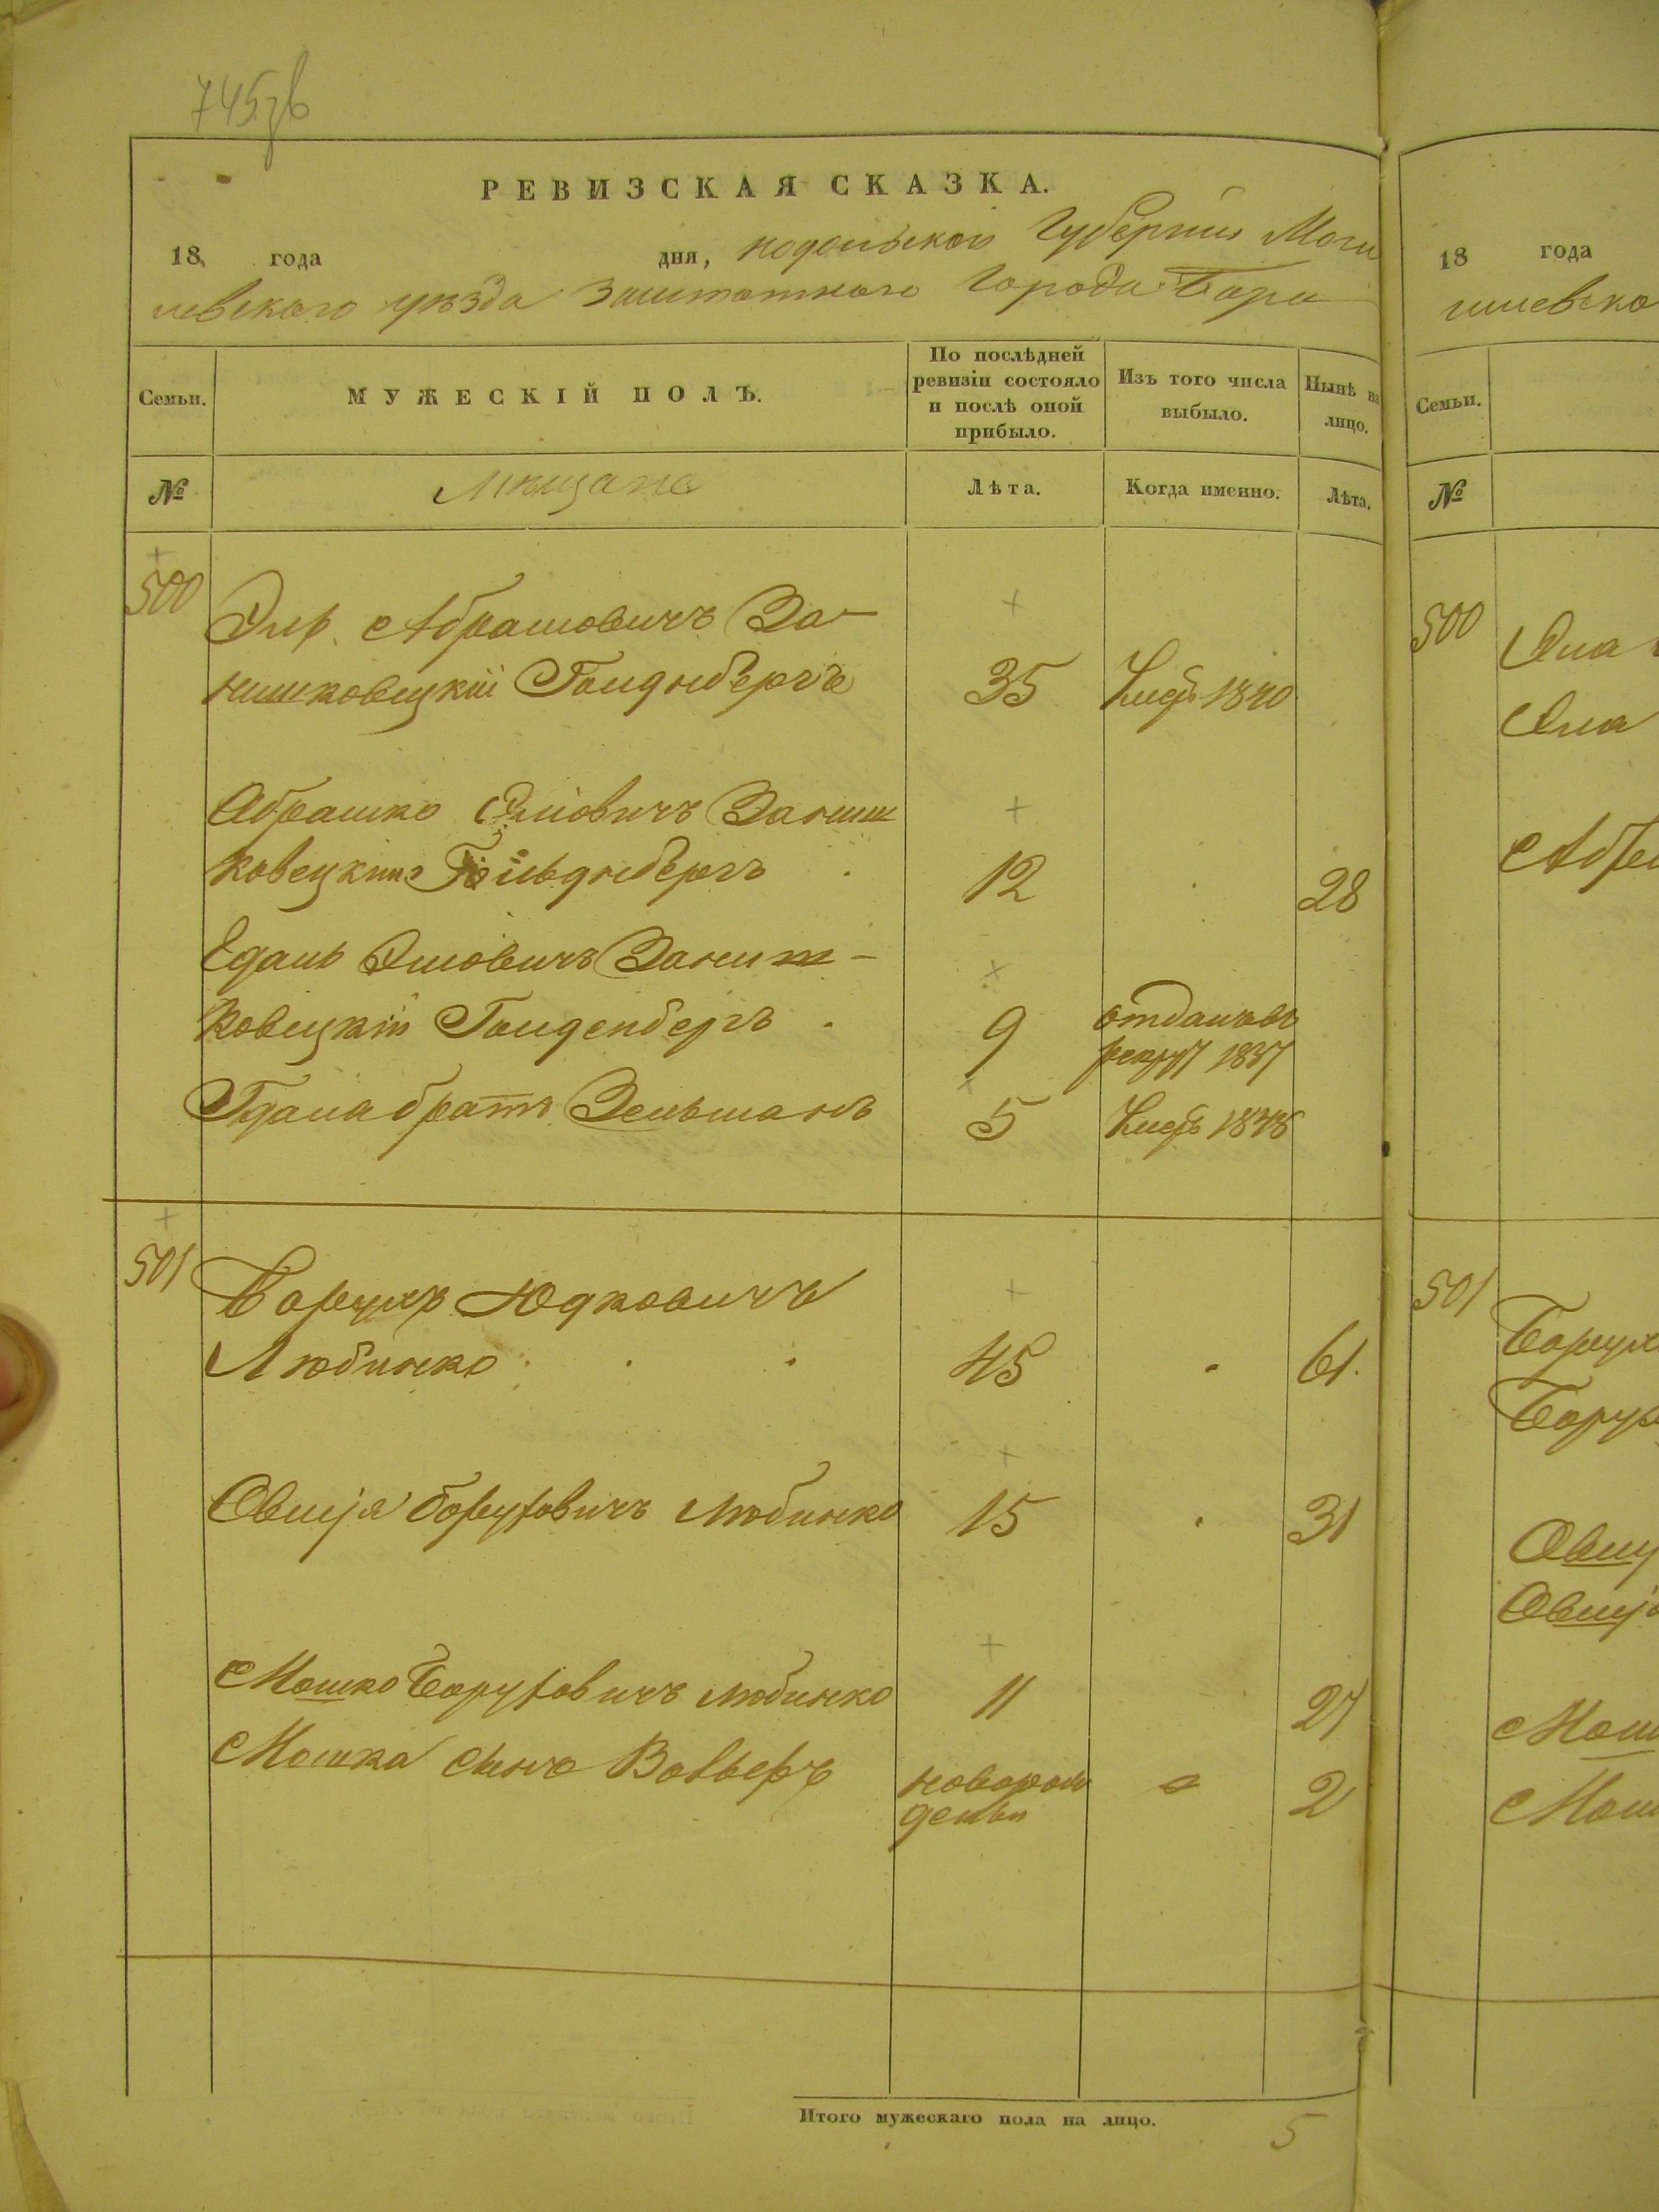 РЕВИЗСКАЯ СКАЗКА.
18 года дня, подольской Губерніи Моги
левского уѣзда Заштатного Города Бара
Семьи.
МУЖЕСКІЙ ПОЛЪ.
По послѣдней
ревизіи состояло
и послѣ оной
прибыло.
Изъ того числа
выбыло.
Нынѣ на
лицо.
№
Мѣщане
Лѣта.
Когда именно.
Лѣта.
500
Эль Абрамовичъ За-
нишковецкій Голденбергъ 35 1840
Абрашко Элiовичъ Заниш
ковецкий Гольденбергъ 12 28
Еданъ Элiовичъ Заниш-
ковецкій Голденбергъ 9 отданъ въ
рекруты 1837
братъ Зельманъ 5 1838
501
Борухъ Юдковичъ
Любинко 45 61.
Овшія Борухович Любинко 15 31
Мошко Боруховичъ Любинко 11 27
Мошка сынъ Вольфъ новорож
денъ 2
Итого мужескаго пола на лицо. 5
18 года
гилевско
Семьи.
№
500
Эла
Эла
Абра
501
Борух
Борух
Овши
Овшi
Мош
Мош